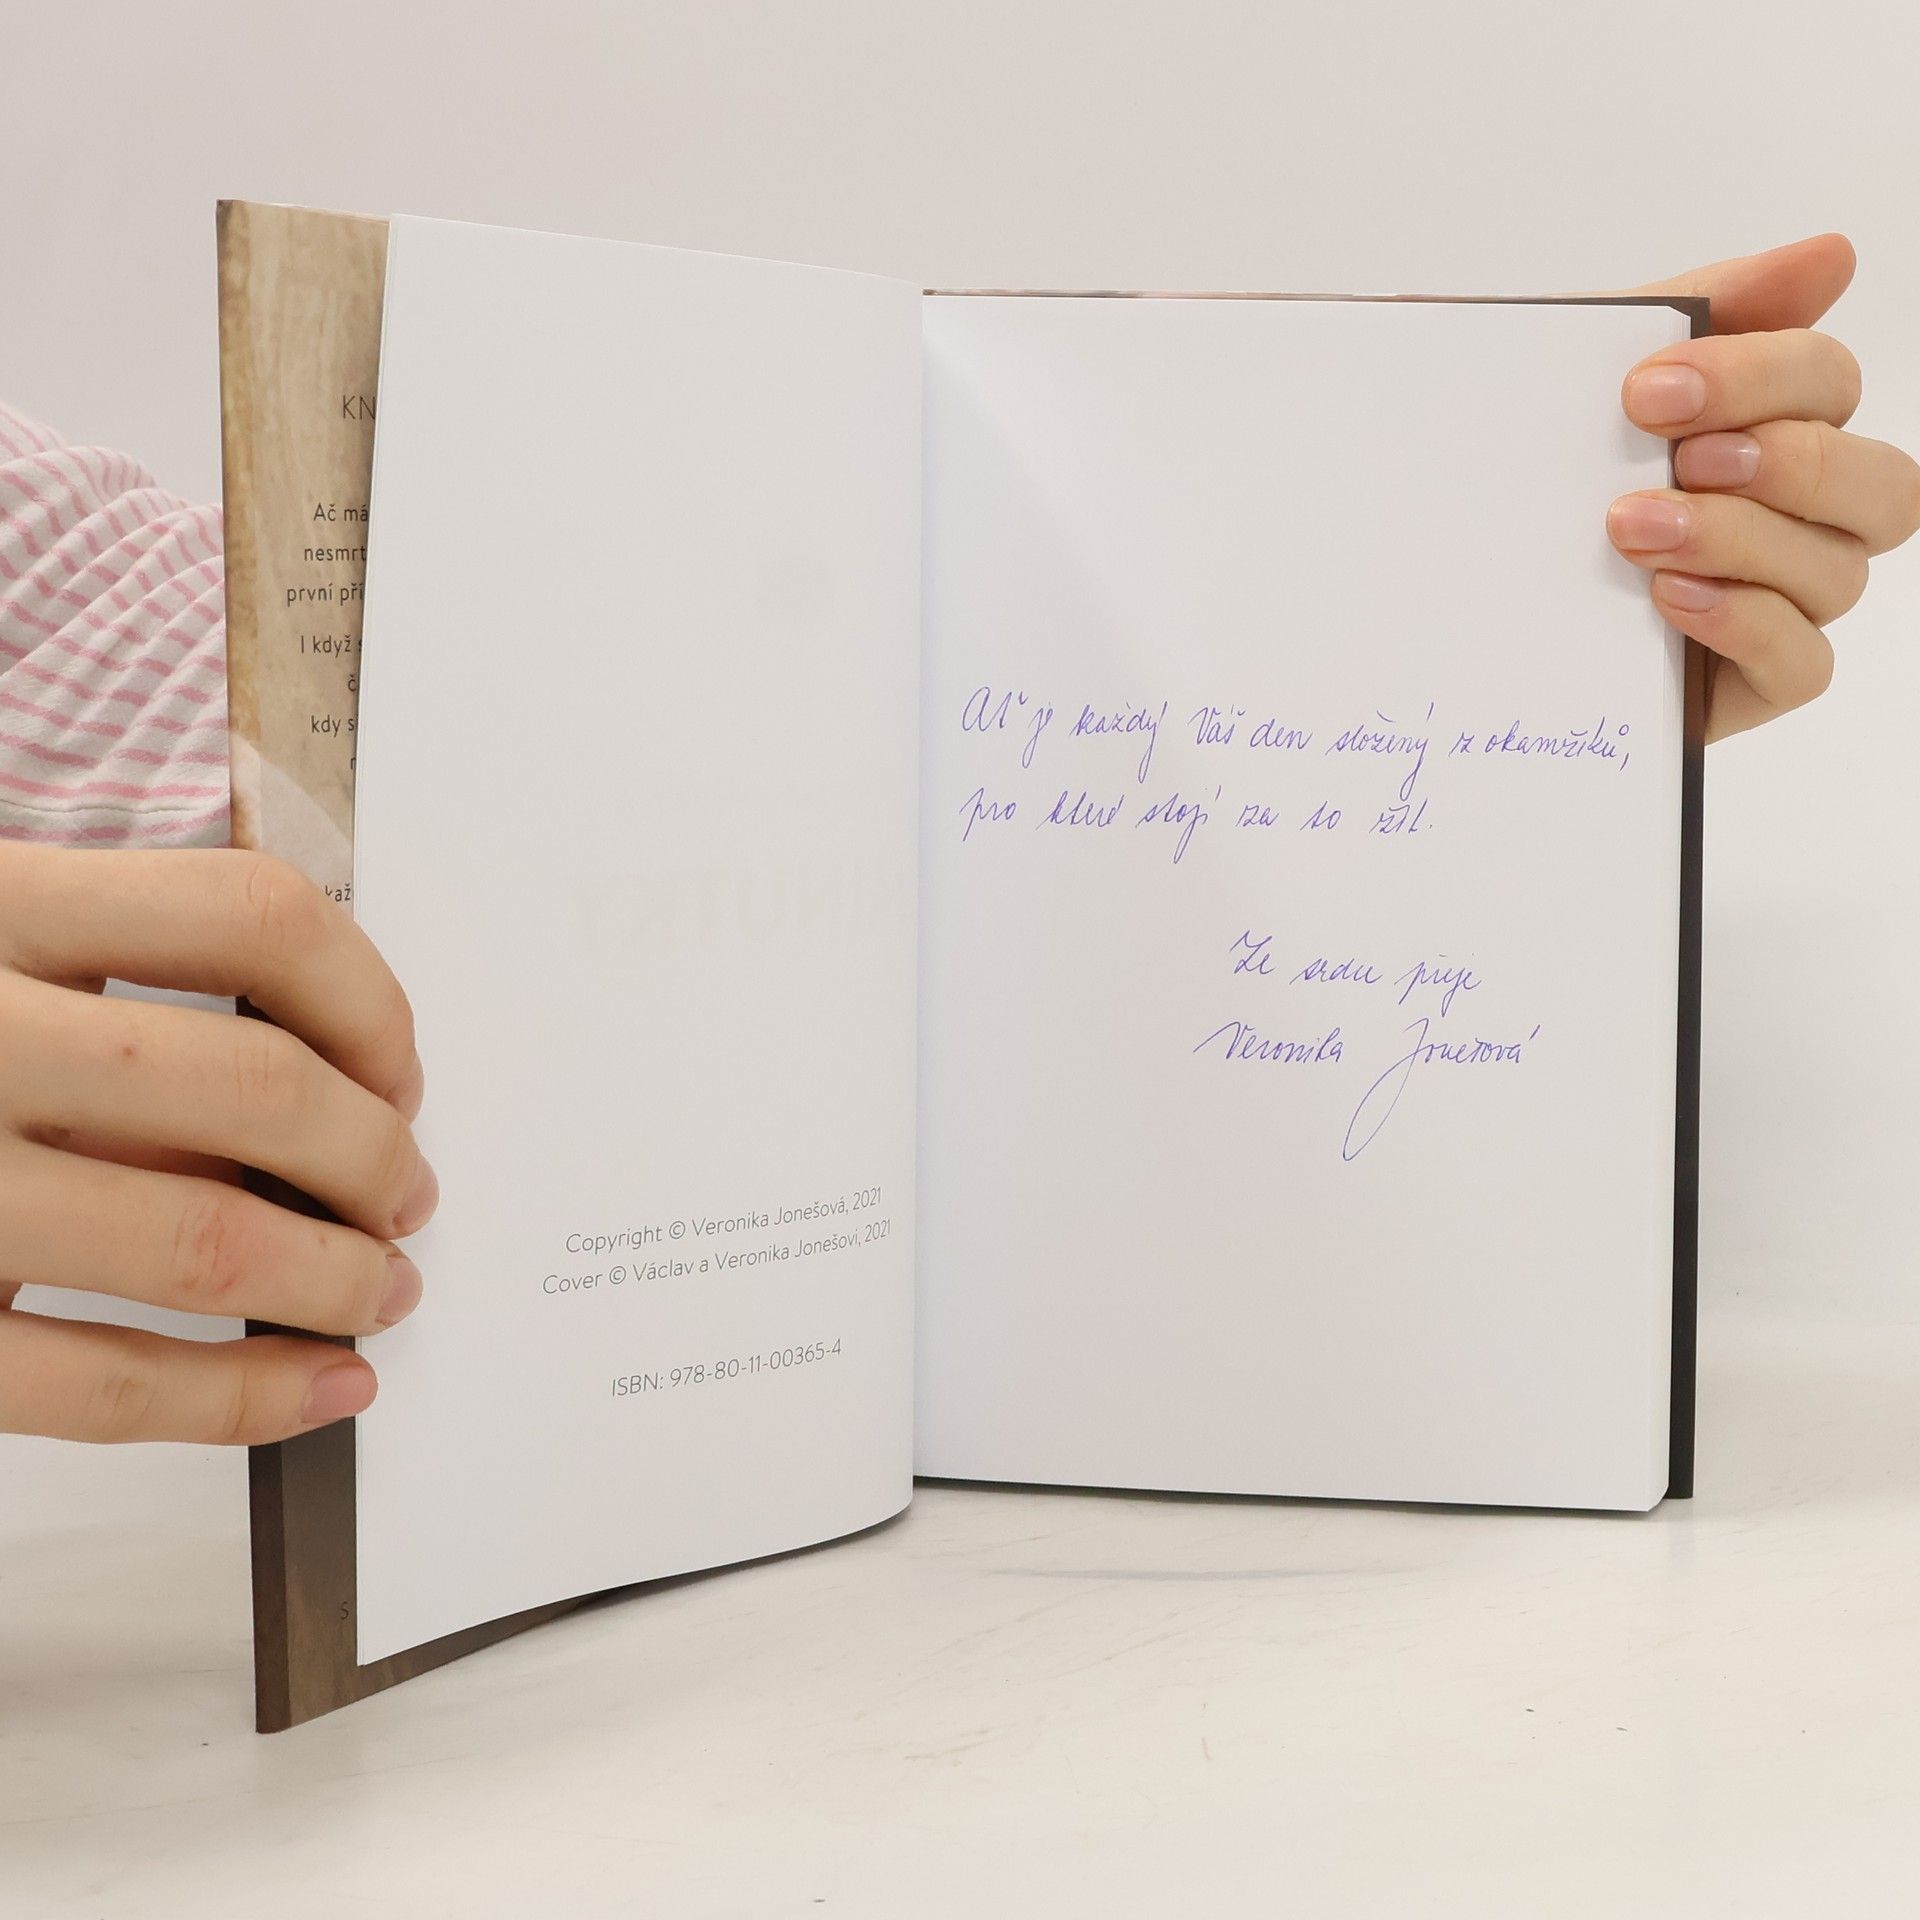 KN
Ač má
nesmrt
první pří
I když s
č
kdy s
kaž
S
Copyright © Veronika Jonešová, 2021
Cover © Václav a Veronika Jonešovi, 2021
ISBN: 978-80-11-00365-4
Ať je každý Váš den složený z okamžiků,
pro které stojí za to žít.
Ze srdce přeje
Veronika Jonešová